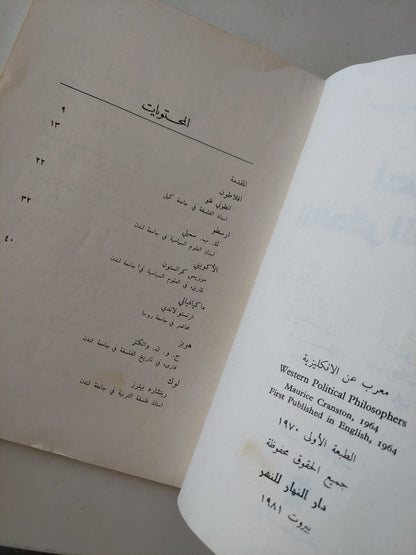 المحتويات
المقدمة ٩
افلاطون ١٣
انطوني فلو
استاذ الفلسفة في جامعة كيل
ارسطو ٢٢
ك. ب. سميلي
استاذ العلوم السياسية في جامعة لندن
الأكويني ٣٢
موريس كرانستون
قارىء في العلوم السياسية في جامعة لندن
ماكيافيلي ٤٠
ارنستو لاندي
محاضر في جامعة روما
هوبز
ج. و. ن. واتكنز
قارىء في تاريخ الفلسفة في جامعة لندن
لوك
ريتشارد بيترز
استاذ فلسفة التربية في جامعة لندن
معرب عن الانكليزية
Western Political Philosophers
Maurice Cranston, 1964
First Published in English, 1964
الطبعة الأولى ١٩٧٠
جميع الحقوق محفوظة
دار النهار للنشر
بيروت ١٩٨١